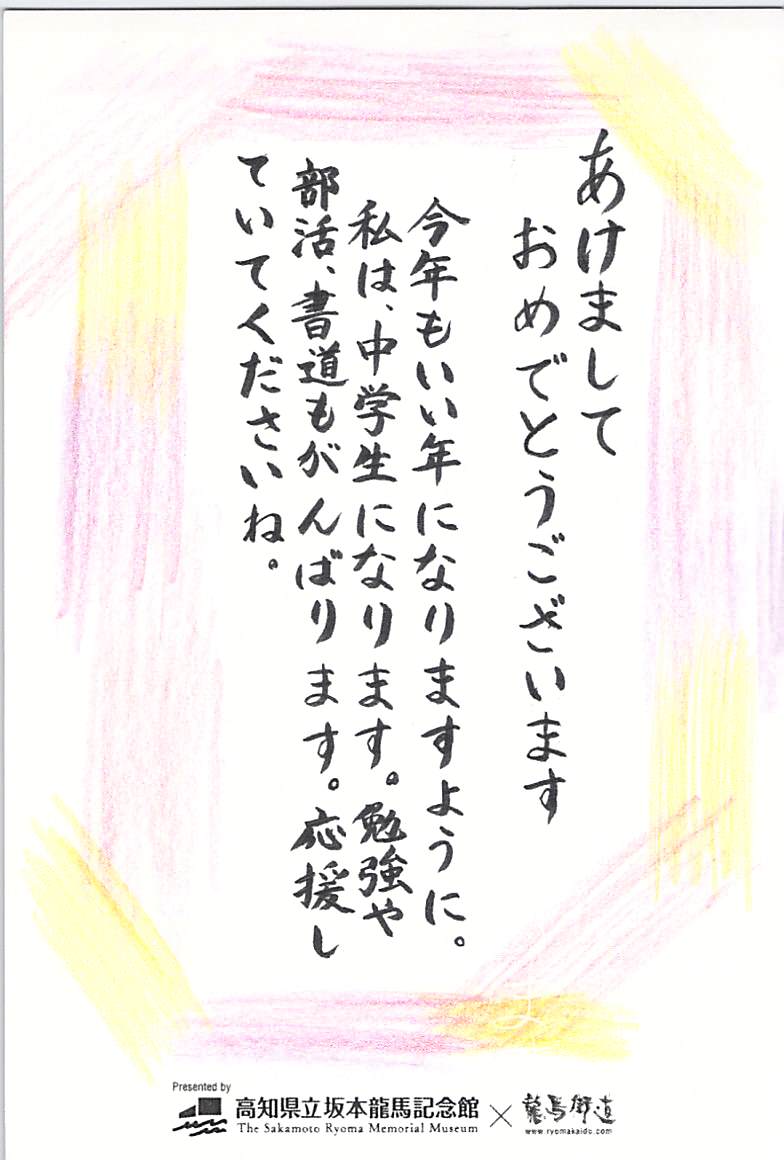 あけまして
おめでとうございます
今年もいい年になりますように。
私は、中学生になります。勉強や
部活、書道もがんばります。応援し
ていてくださいね。
Presented by
高知県立坂本龍馬記念館
The Sakamoto Ryoma Memorial Museum
×
龍馬街道
www.ryomakaido.com